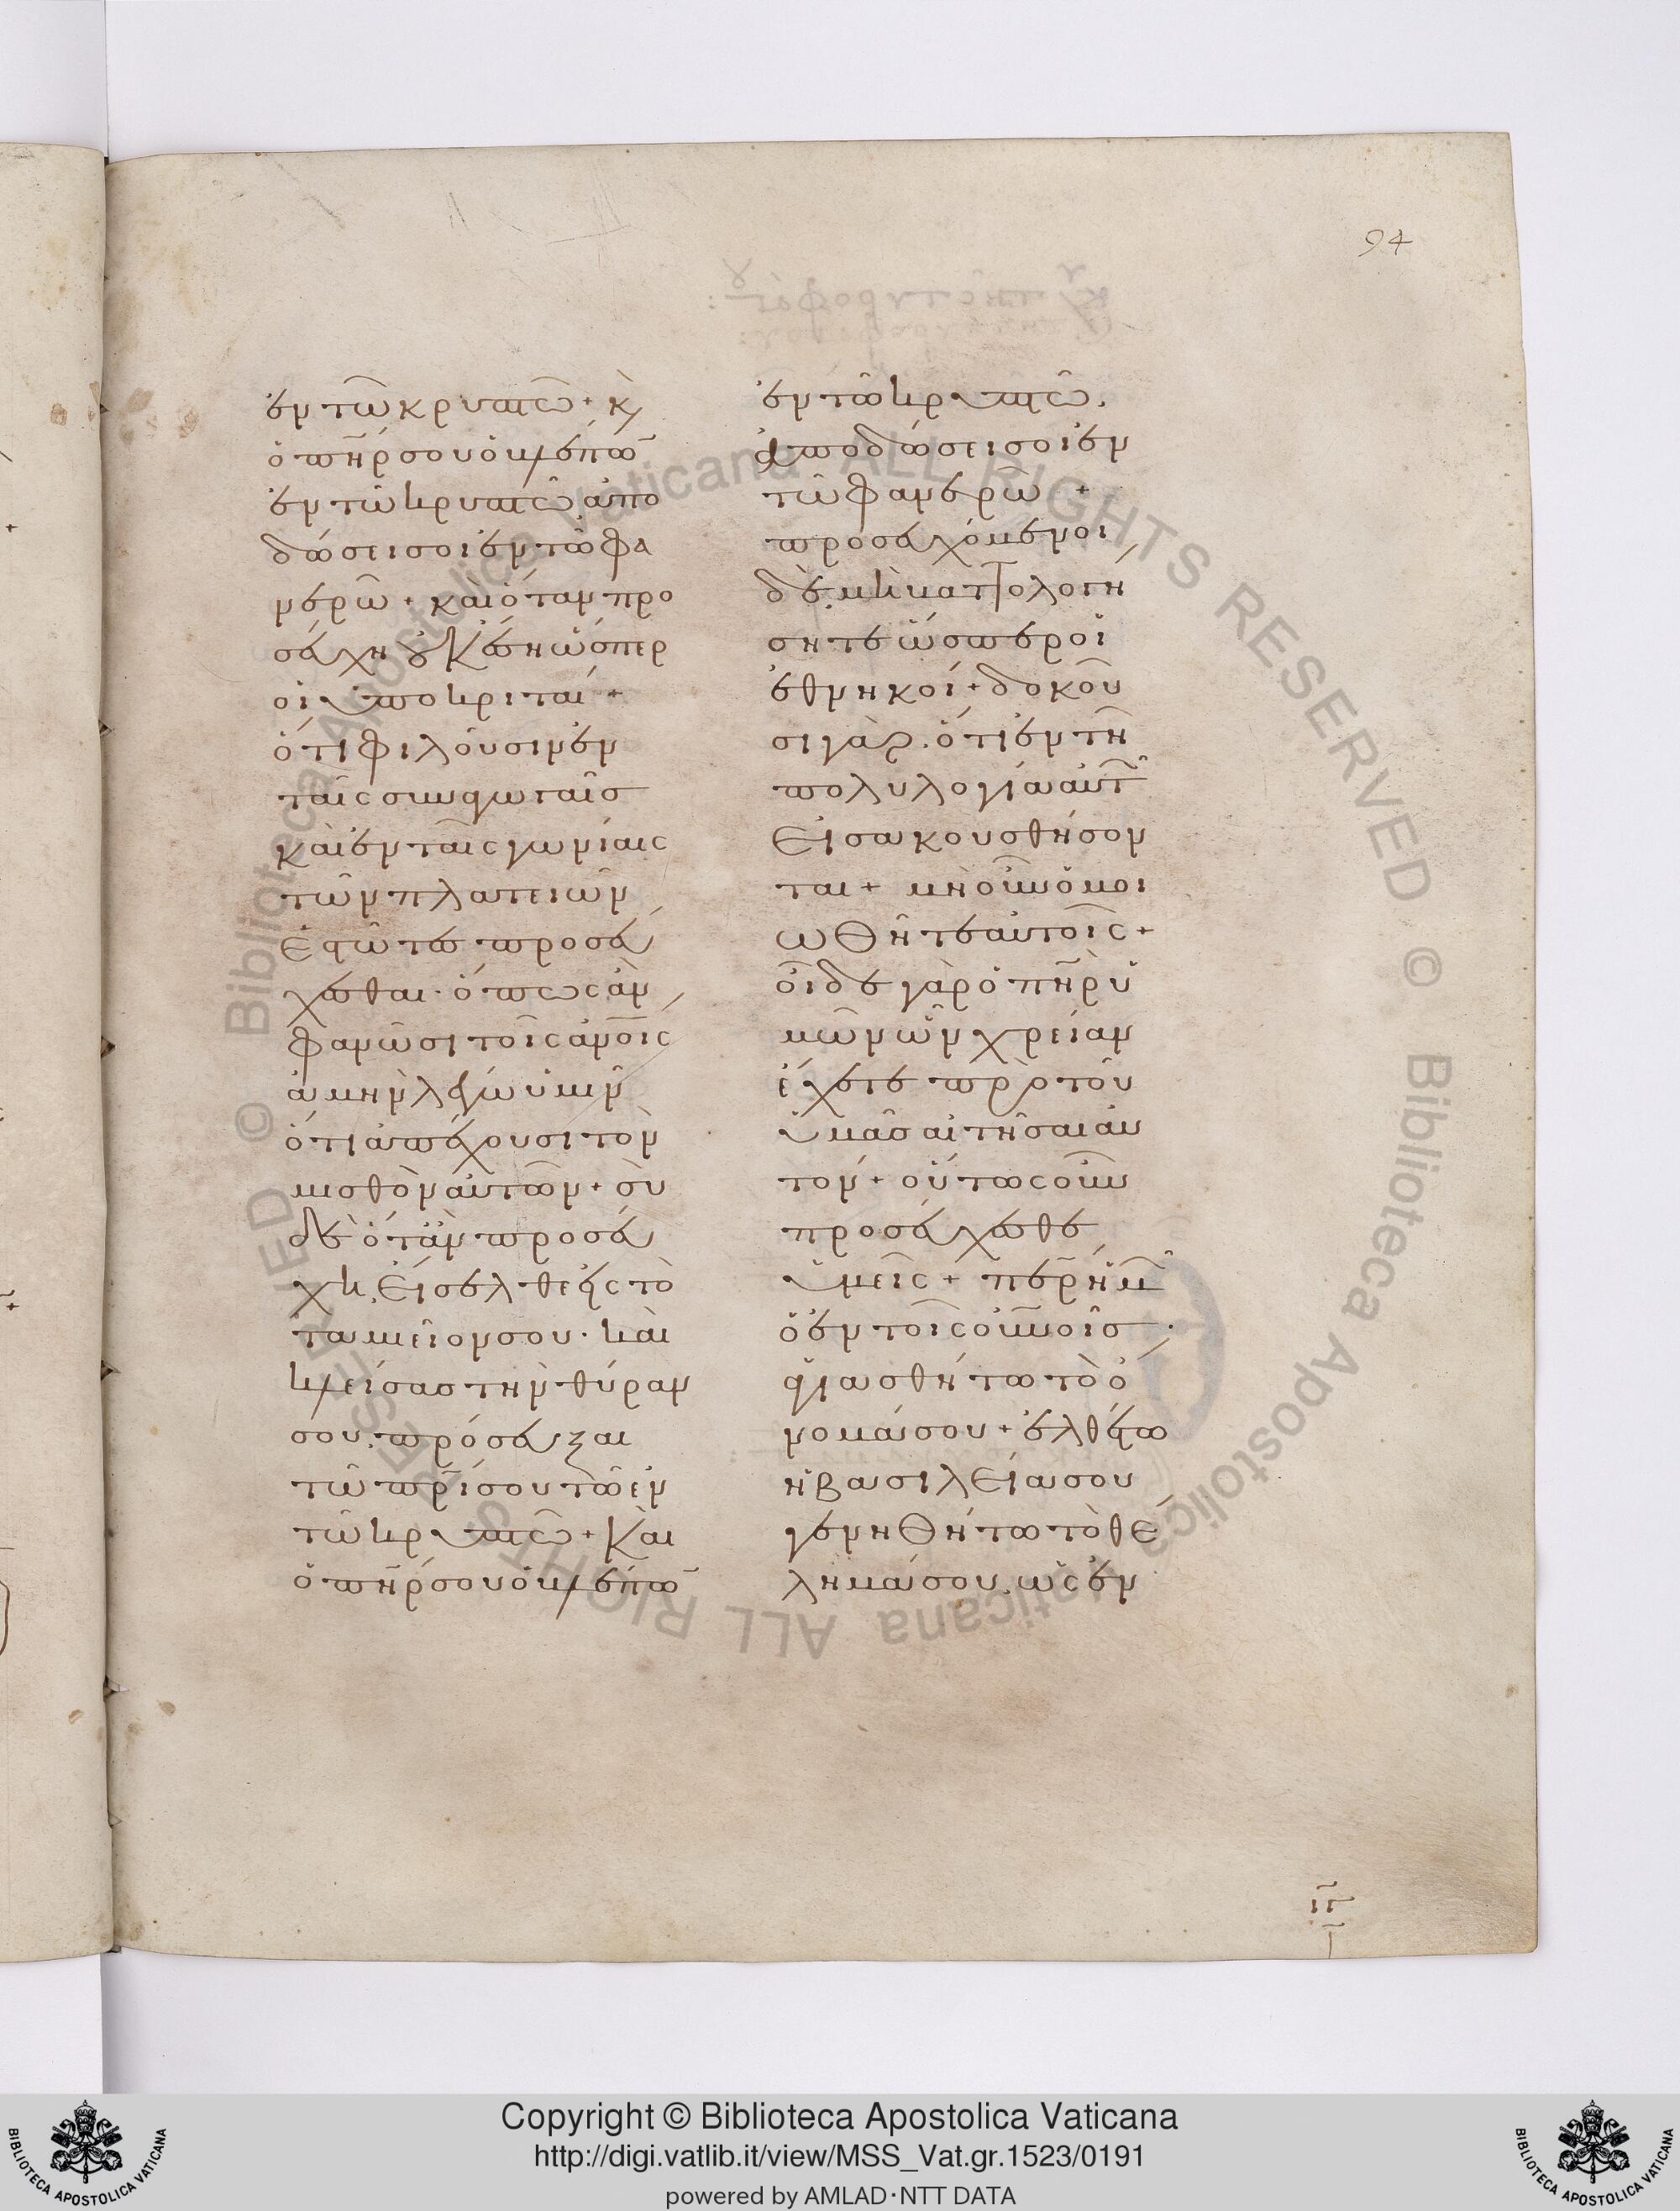 94
ἐν τῶ κρυπτῶ + κ̀
ὁ π̅η̅ρ σου ὁ βλέπω̅
ἐν τῶ κρυπτῶ ἀπο
δώσει σοι ἐν τῶ φα
νερῶ + καὶ ὅταν προ
σεύχη οὐκ ἔση ὥσπερ
οἱ ὑποκριταί +
ὅτι φιλοῦσιν ἐν
ταῖς συναγωγαῖς
καὶ ἐν ταῖς γωνίαις
τῶν πλατειῶν
ἑστῶτες προσεύ
χεσθαι · ὅπως ἂν
φανῶσι τοῖς ἀν̅οις
ἀμὴν λέγω ὑμῖν
ὅτι ἀπέχουσι τὸν
μισθὸν αὐτῶν + σὺ
δὲ ὅταν προσεύ
χη, εἴσελθε εἰς τὸ
ταμιεῖον σου · καὶ
κλείσας τὴν θύραν
σου, πρόσευξαι
τῶ π̅ρ̅ι σου τῶ ἐν
τῶ κρυπτῶ + καὶ
ὁ π̅η̅ρ σου ὁ βλέπω̅
ἐν τῶ κρυπτῶ,
ἀποδώσει σοι ἐν
τῶ φανερῶ +
προσευχόμενοι
δὲ, μὴ βαττολογή
σητε ὥσπερ οἱ
ἐθνηκοί + δοκοῦ
σι γὰρ. ὅτι ἐν τῆ
πολυλογία αὐτ̅
εἰσακουσθήσον
ται + μὴ οὖν ὁμοι
ωθῆτε αὐτοῖς +
οἶδε γὰρ ὁ π̅η̅ρ ὑ
μῶν ὧν χρείαν
ἔχετε πρὸ τοῦ
ὑμᾶς αἰτῆσαι αὐ
τόν + οὕτως οὖν
προσεύχεσθε
ὑμεῖς + π̅ε̅ρ ἡμ̅
ὁ ἐν τοῖς οὐνοῖς ·
ἁγιασθήτω τὸ ὄ
νομά σου + ἐλθέτω
ἡ βασιλεία σου
γενηθήτω τὸ θέ
λημά σου, ὡς ἐν
Copyright © Biblioteca Apostolica Vaticana
http://digi.vatlib.it/view/MSS_Vat.gr.1523/0191
powered by AMLAD·NTT DATA